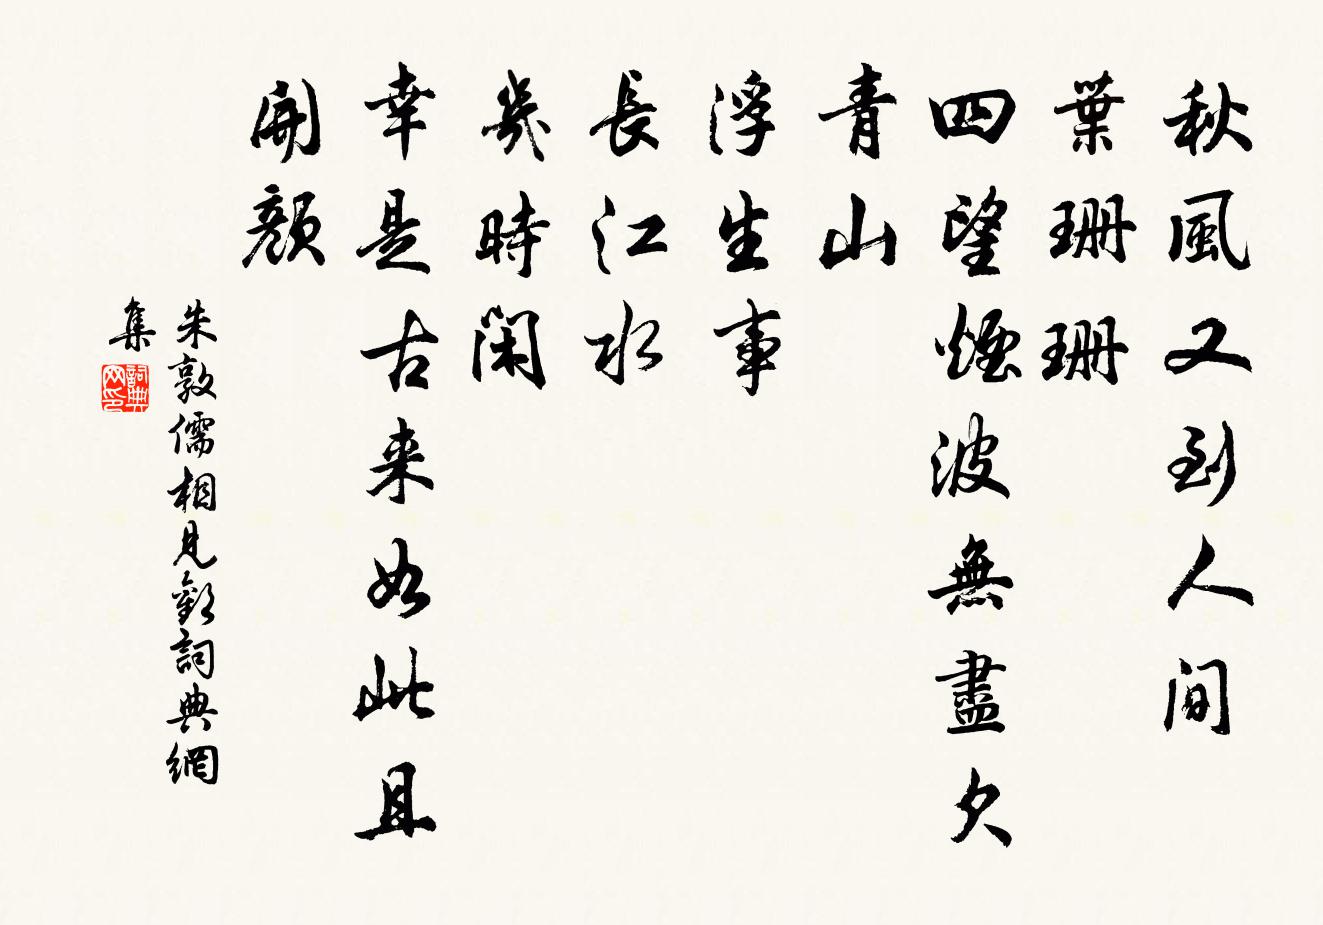 秋風又到人间
葉珊珊
四望煙波無盡欠
青山
浮生事
長江水
幾時閑
幸是古来如此且
開顏
朱敦儒相見歡詞典網
集
詞典
网印